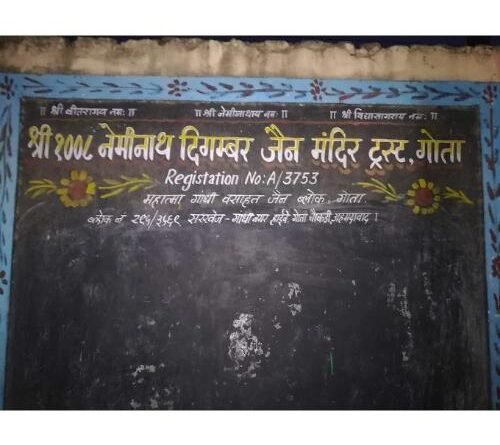 ॥ श्री वीतरागाय नमः ॥ ॥ श्री नेमीनाथाय नमः ॥ ॥ श्री विद्यासागराय नमः ॥
श्री १००८ नेमीनाथ दिगम्बर जैन मंदिर ट्रस्ट, गोता
Registation No: A/3753
महात्मा गांधी वसाहत जैन ब्लोक, गोता.
ब्लोक नं सरखेज - गांधीनगर हाईवे गोता चौकडी, अहमदाबाद।